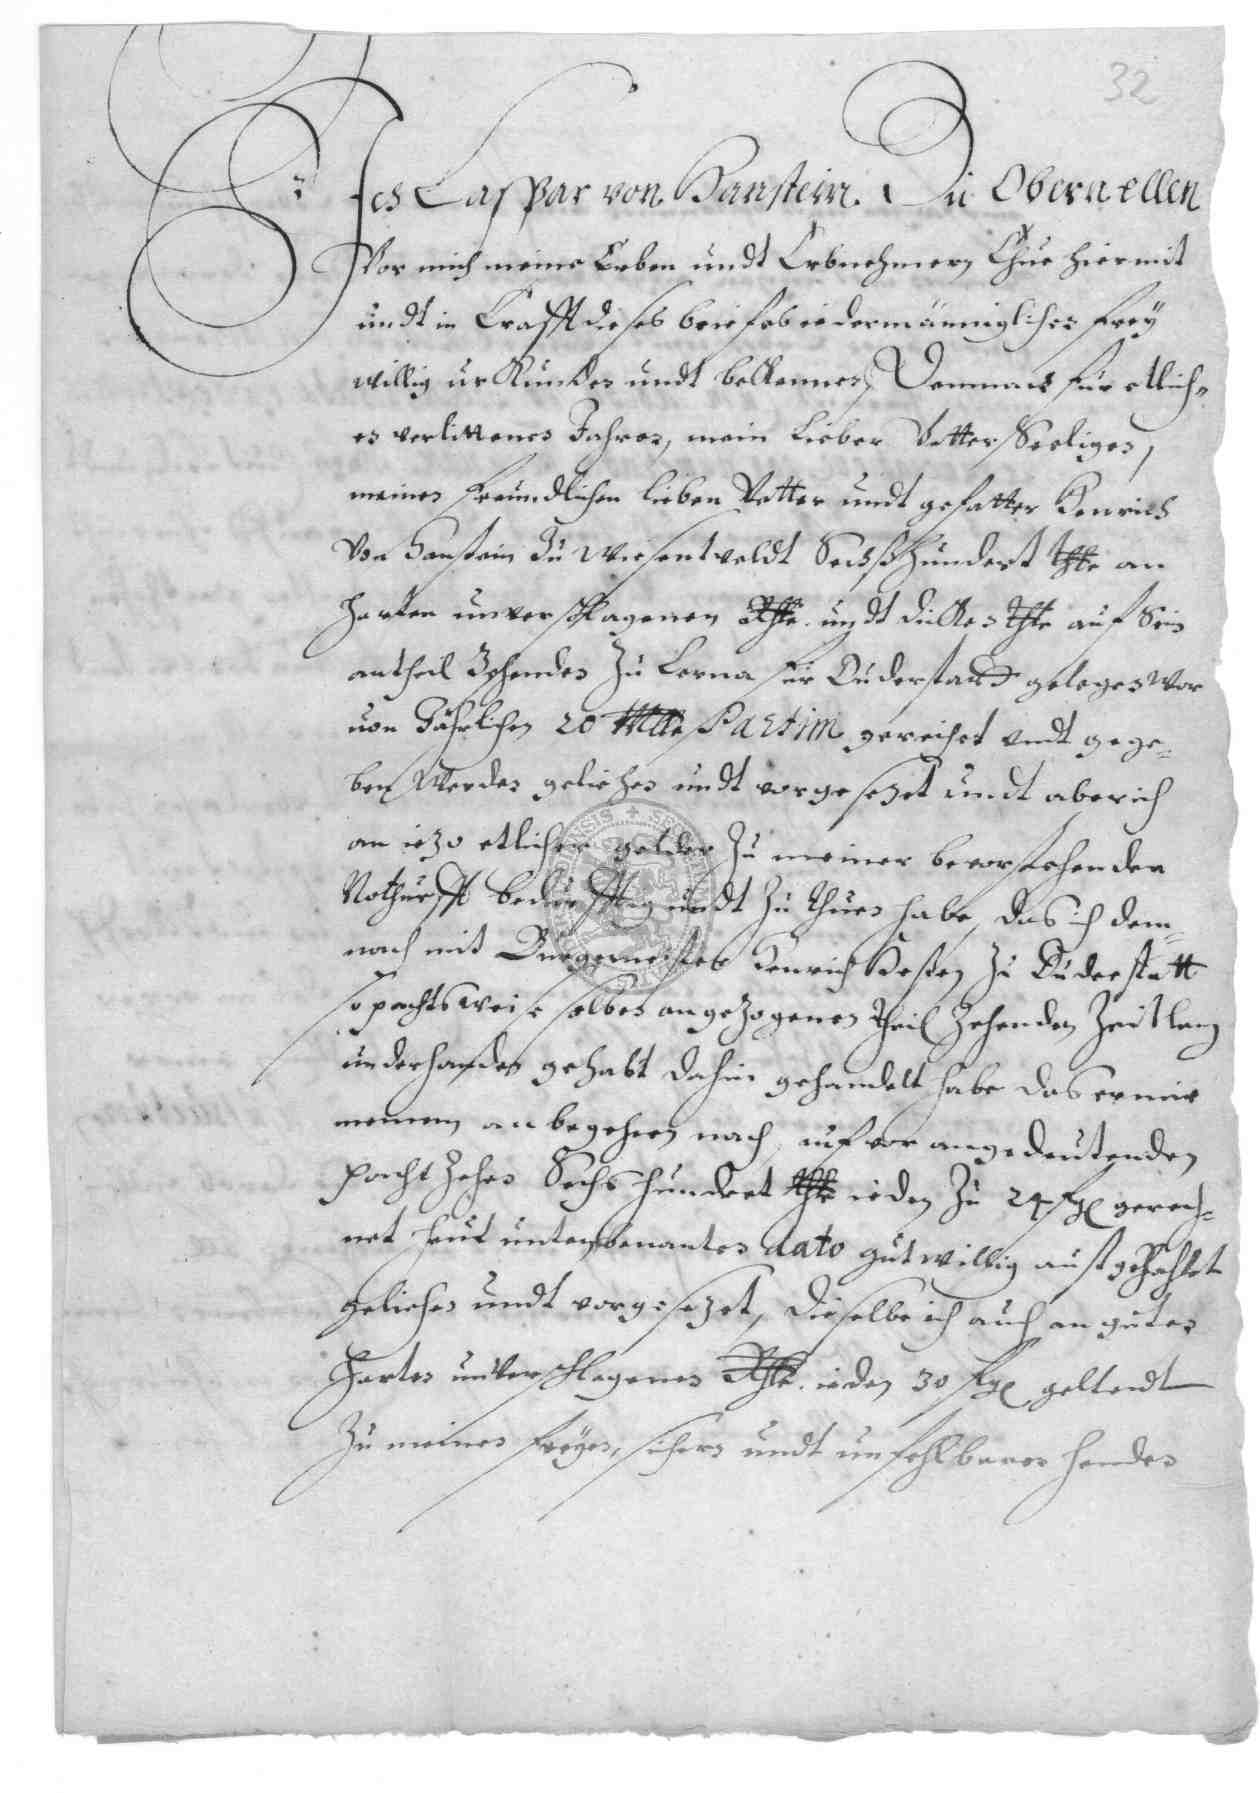 32
Ich Caspar von Hanstein. Zu Obern ellen
Vor mich meine Erben undt Erbnehmern Thue hiermit
undt in Crafft dieses briefes iedermänniglichen frey
willig urkunden undt bekennen, Demnach für etlich-
en verlittenen Jahren, mein Lieber Vatter Seeliger,
meinen freundlichen lieben Vetter undt gefatter Henrich
Von Hanstein Zu Wiesentveldt Sechßhundert thlr an
harten unverschlagenen Rthlr. undt dicken thlr auf Sein
antheil Zehenden Zu Berna für Duderstadt gelegen wor
von Jährlichen 20 Mltr Partim gereichet undt gege-
ben Werden geliehen undt vorgesezet undt aber ich
an iezo etlicher gelder Zu meiner bevorstehenden
Nothurfft bedürfftig undt Zu thuen habe, das ich dem-
nach mit Burgermeister Henrich Hesen Zu Duderstatt
so pachtsweise selben angezogenen theil Zehenden Zeitlang
underhanden gehabt dahin gehandelt habe das er mir
meinem an begehren nach, uf vor angedeutenden
pacht Zehen Sechshundert thlr ieden Zu 24 ßgl gerech-
net heut untenbenanten dato gutwillig austgezahlet
geliehen undt vorgesezet, Dieselbe ich auch an guten
harten unverschlagenen Rthlr. ieden 30 ßgl geltendt
Zu meinen freyen, sichern undt unfehlbaren henden